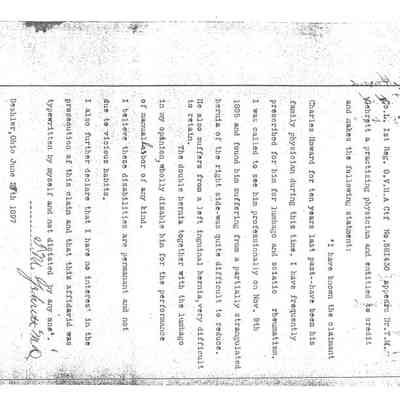 Co.L, 1st Reg. O.V.H.A Ctf No.581430 Appedrs Dr.T.M.
Gehrett a practicing physician and entitled to credit
and makes the following statment:
"I have known the claimant
Charles Howard for ten years last past--have been his
family physician during this time. I have frequently
prescribed for him for lumbago and sciatic rheumatism.
I was called to see him professionally on Nov. 9th
1895 and found him suffering from a partially strangulated
hernia of the right side-was quite difficult to reduce.
He also suffers from a left inguinal hernia,very difficult
to retain.
The double hernia together with the lumbago
in my opinion,wholly disable him for the performance
of manual labor of any kind.
I believe these disabilities are permanant and not
due to vicious habits.
I also further declare that I have no interest in the
prosecution of this claim and that this affidavit was
typewritten by myself and not dictated by any one".
M.D.
Deshler,Ohio June 1897.